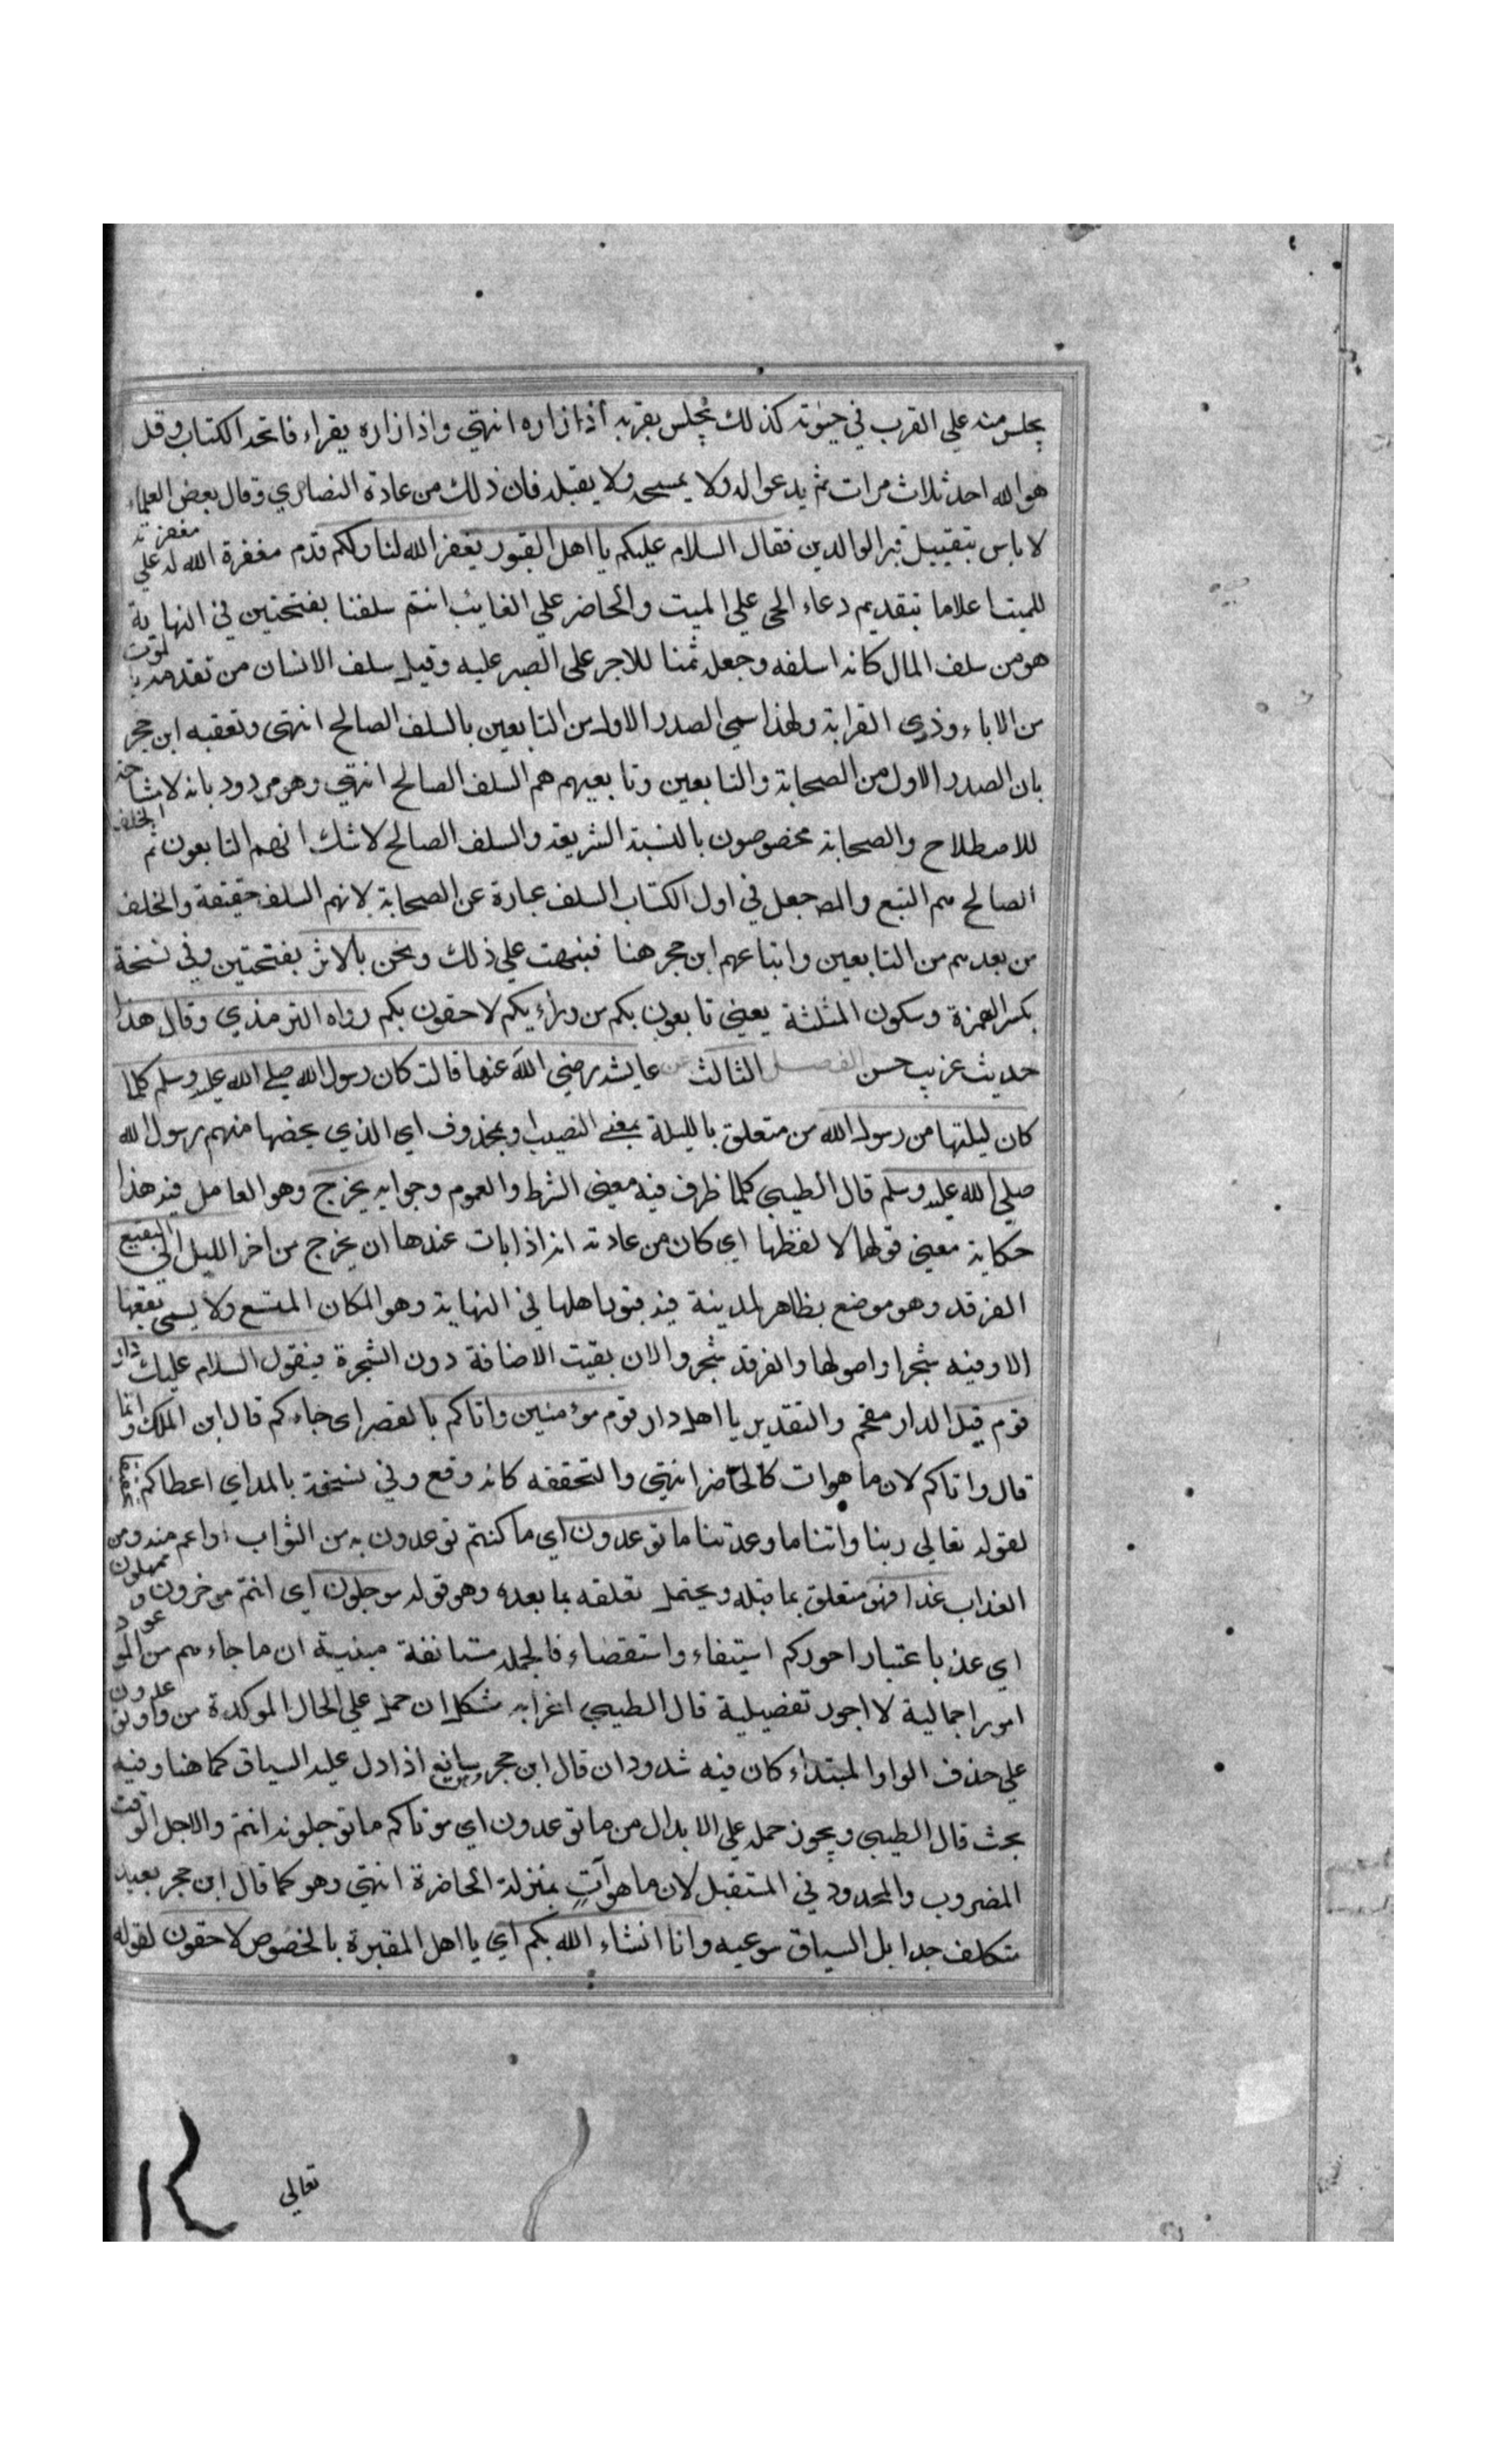 يجلس منه علي القرب في حيوته كذلك يجلس بقربه اذا زاره انتهي واذا زاره يقراء فاتحة الكتاب وقل
هو الله احد ثلاث مرات ثم يدعوا له ولا يمسحه ولا يقبله فان ذلك من عادة النصاري وقال بعض العلماء
لا باس بتقبيل قبر الوالدين فقال السلام عليكم يا اهل القبور يغفر الله لنا ولكم قدم مغفرة الله له علي مغفرته
للميت اعلاما بتقديم دعاء الحي علي الميت والحاضر علي الغايب انتم سلفنا بفتحتين في النهاية
هو من سلف المال كانه اسلفه وجعله ثمنا للاجر علي الصبر عليه وقيل سلف الانسان من تقدمه بالموت
من الاباء وذوي القرابة ولهذا سمي الصدر الاول من التابعين بالسلف الصالح انتهي وتعقبه ابن حجر
بان الصدر الاول من الصحابة والتابعين وتابعيهم هم السلف الصالح انتهي وهو مردود بانه لا مشاحة
للاصطلاح والصحابة مخصوصون بالنسبة الشريفة والسلف الصالح لا شك انهم التابعون ثم الخلف
الصالح هم التبع والمص جعل في اول الكتاب السلف عبارة عن الصحابة لانهم السلف حقيقة والخلف
من بعدهم من التابعين واتباعهم ابن حجر هنا فبنهت علي ذلك ونحن بالاثر بفتحتين وفي نسخة
بكسر الهمزة وسكون المثلثة يعني تابعون بكم من ورائكم لاحقون بكم رواه الترمذي وقال هذا
حديث غريب حسن الفصل الثالث عن عايشة رضي الله عنها قالت كان رسول الله صلي الله عليه وسلم كلما
كان ليلتها من رسول الله من متعلق بالليلة بمعني النصيب او بمحذوف اي الذي يخصها منهم رسول الله
صلي الله عليه وسلم قال الطيبي كلما ظرف فيه معني الشرط والعموم وجوابه يخرج وهو العامل فيه هذا
حكاية معني قولها لا لفظها اي كان من عادته انه اذا بات عندها ان يخرج من اخر الليل الي البقيع
الغرقد وهو موضع بظاهر لمدينة فيه قبور اهلها في النهاية وهو المكان المتسع ولا يسمي بقيعا
الا وفيه شجر او اصولها والغرقد شجر والان بقيت الاضافة دون الشجرة فيقول السلام عليك دار
قوم قيل الدار مقحم والتقدير يا اهل دار قوم مؤمنين واتاكم بالقصر اي جاءكم قال ابن الملك وانما
قال واتاكم لان ما هو ات كالحاضر انتهي والتحققه كانه وقع وفي نسخة بالمد اي اعطاكم
لقوله تعالي ربنا واتنا ما وعدتنا ما توعدون اي ما كنتم توعدون به من الثواب او اعم منه ومن
العذاب غدا فهو متعلق بما قبله ويحتمل تعلقه بما بعده وهو قوله موجلون اي انتم موخرون وممهلون
اي غد باعتبار اجوركم استيفاء واستقصاء فالجملة مستانفة مبنية ان ما جاءهم من الموعود
امور اجمالية لا اجور تفضيلية قال الطيبي اعرابه مشكل ان حمل علي الحال الموكدة من واو توعدون
علي حذف الواو المبتداء كان فيه شدود ان قال ابن حجر وسايغ اذا دل عليه السياق كما هنا وفيه
بحث قال الطيبي ويجوز حمله علي الابدال من ما توعدون اي موتاكم ما توجلونه انتم والاجل الوقت
المضروب والمحدود في المستقبل لان ما هو آتٍ بمنزلة الحاضرة انتهي وهو كما قال ابن حجر بعيد
متكلف جدا بل السياق سوعيه وانا انشاء الله بكم اي يا اهل المقبرة بالخصوص لاحقون لقوله
تعالي